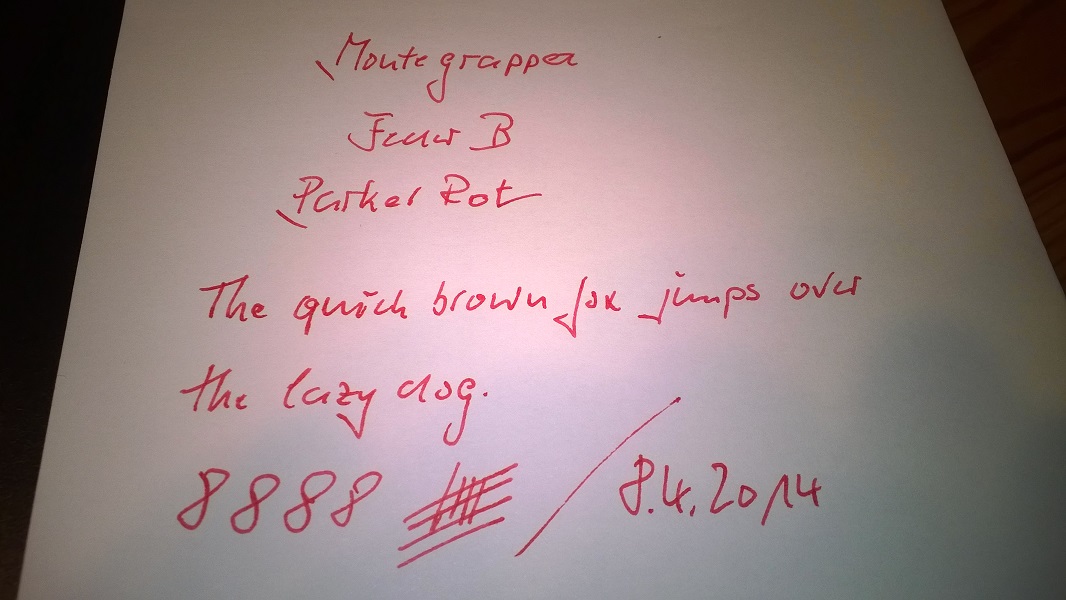 Montegrappa
Feder B
Parker Rot
The quick brown fox jumps over
the lazy dog.
8888 8.4.2014